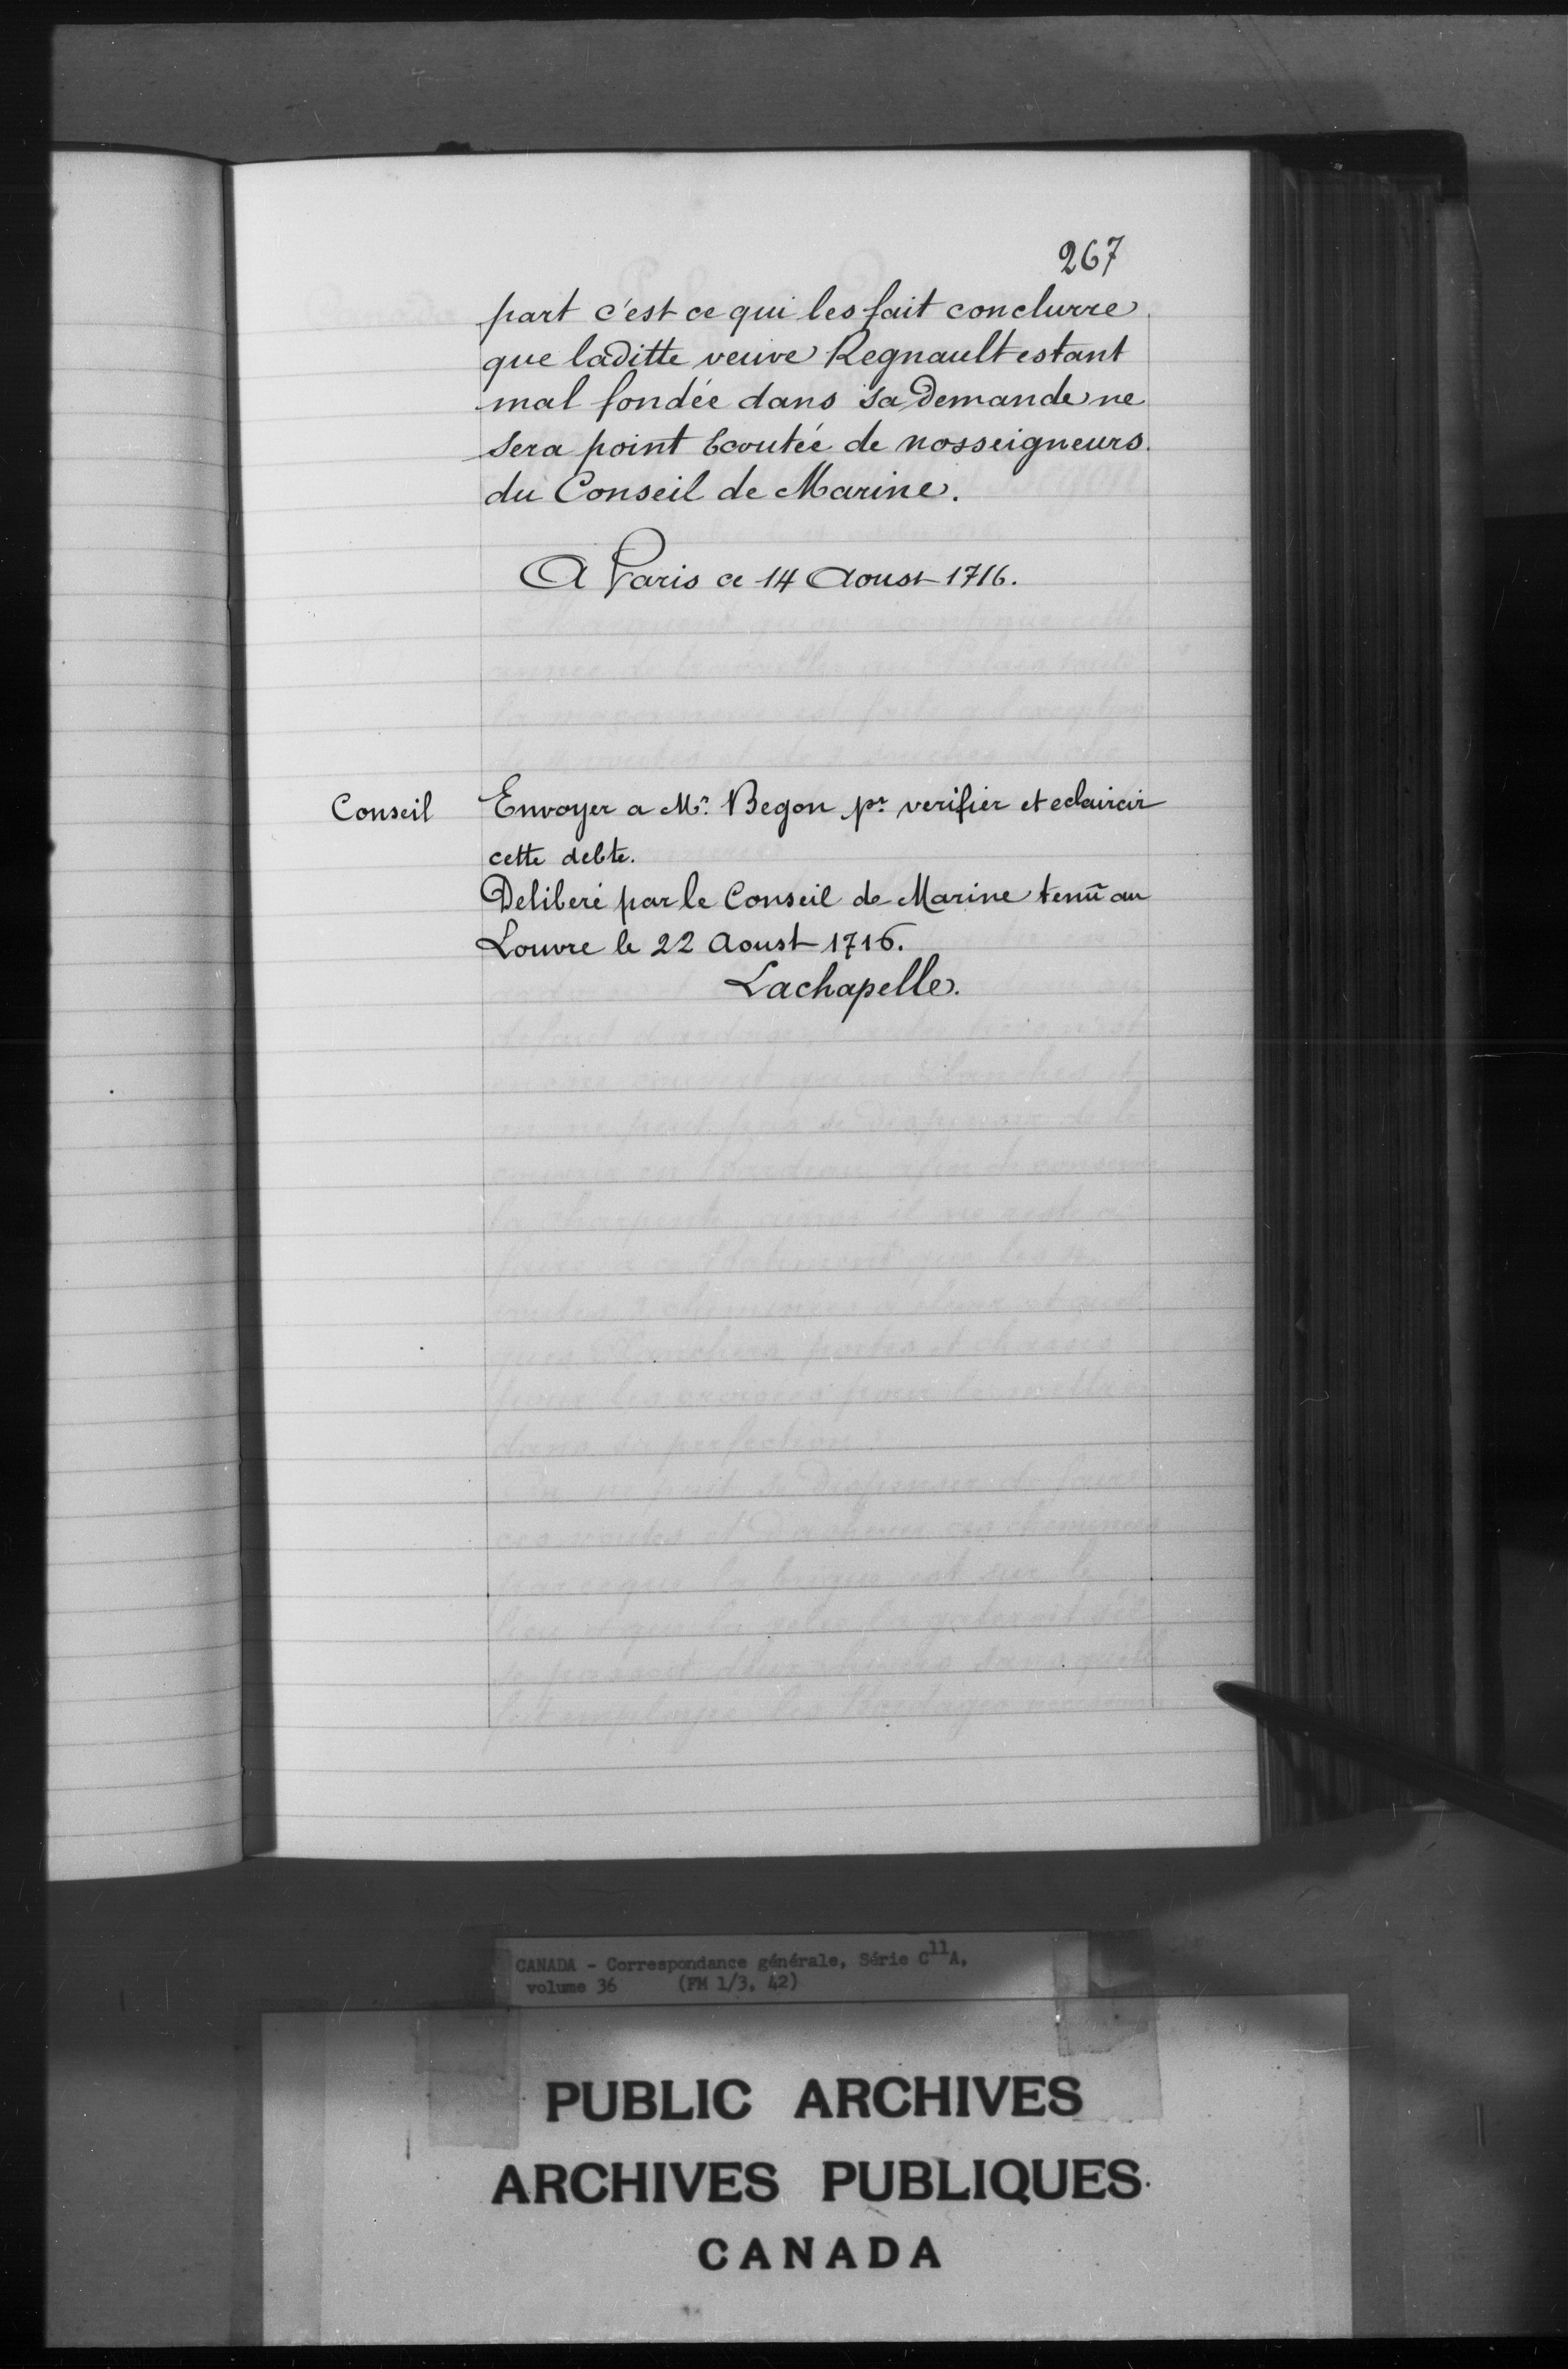 267
part c'est ce qui les fait conclurre
que laditte veuve Regnault estant
mal fondée dans sa Demande ne
sera point Ecoutée de nosseigneurs
du Conseil de Marine.
A Paris ce 14 Aoust 1716.
Conseil Envoyer a Mr. Begon pr. verifier et eclaircir
cette debte.
Deliberé par le Conseil de Marine tenū au
Louvre le 22 Aoust 1716.
Lachapelle.
CANADA - Correspondance générale, Série C11A,
volume 36 (FM 1/3, 42)
PUBLIC ARCHIVES
ARCHIVES PUBLIQUES
CANADA